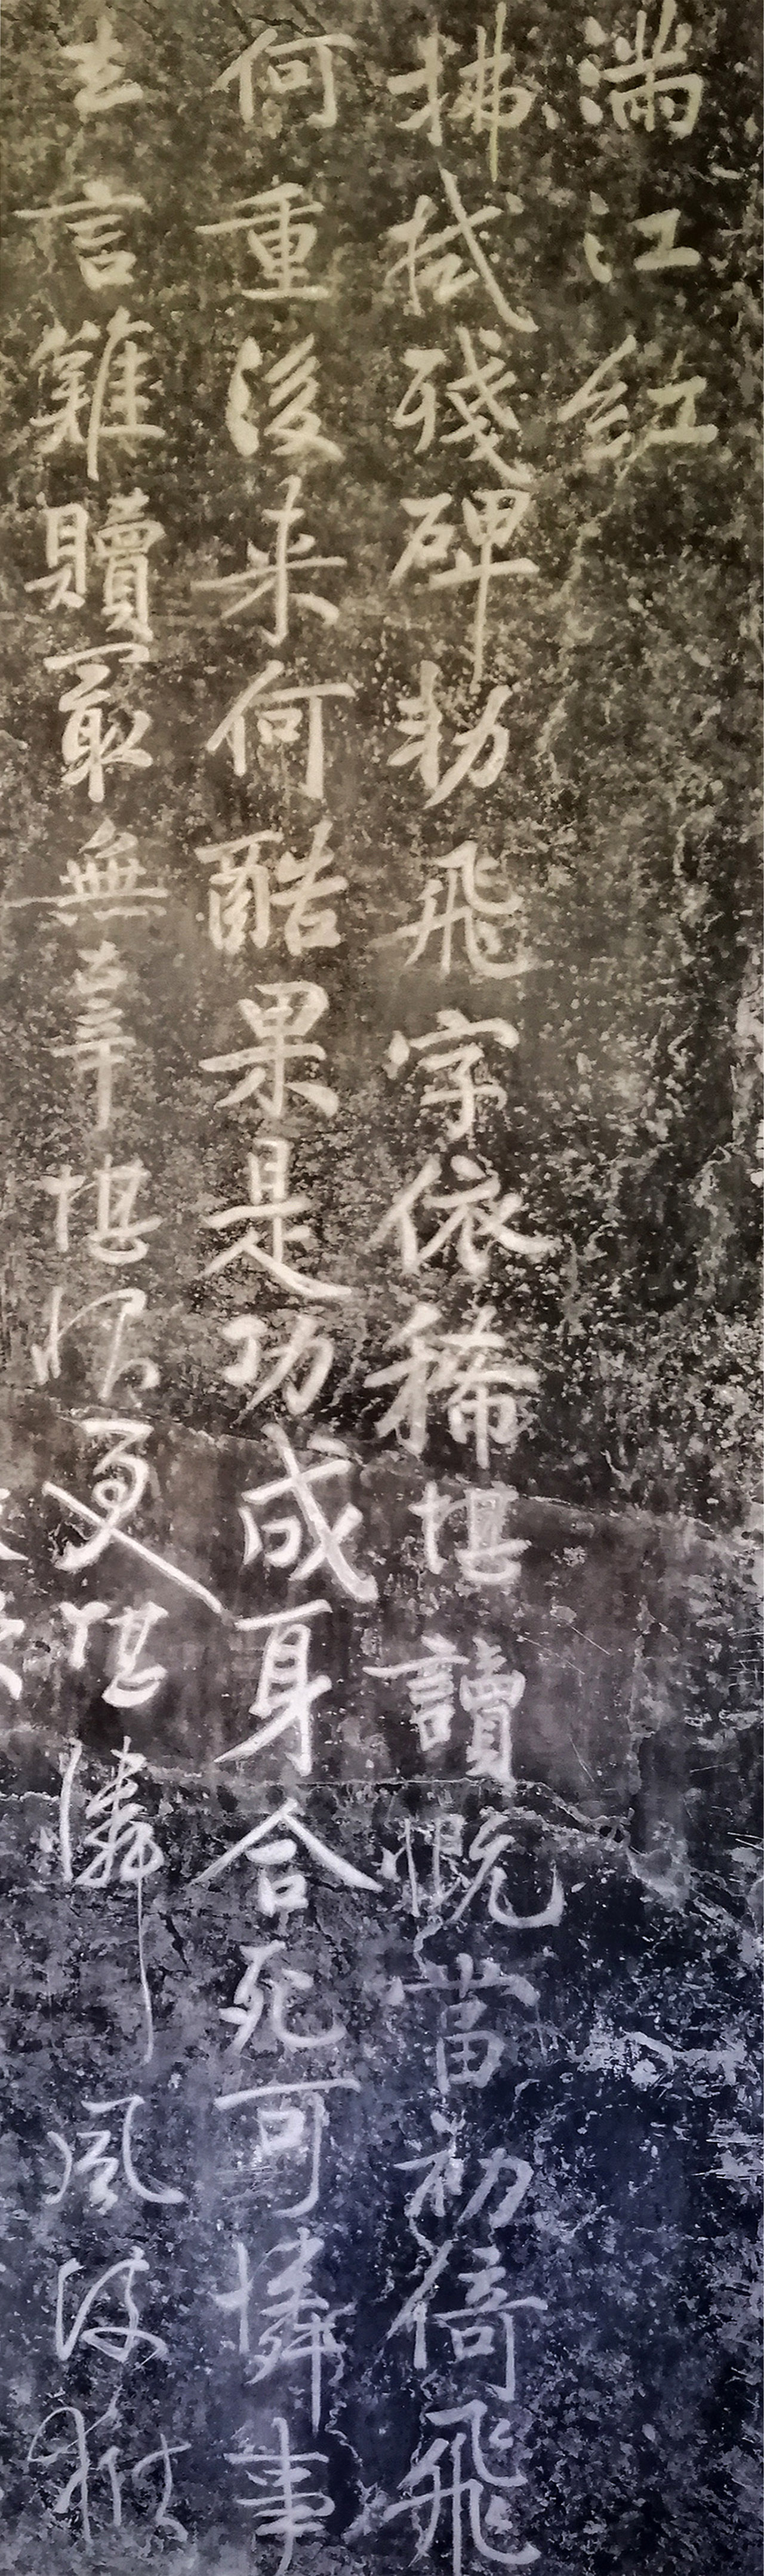 滿江紅
拂拭殘碑勑飛字依稀堪讀慨當初倚飛
何重後来何酷果是功成身合死可憐事
去言難贖最無辜堪恨更堪憐風波獄